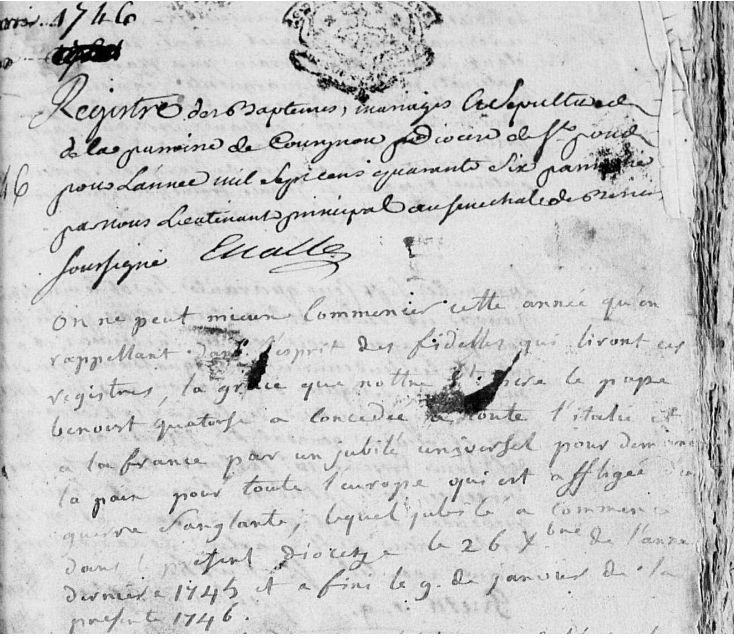 1746
Registre des Baptemes, mariages et sepultures
de la paroisse de Courniou diocese de St pons
pour Lannee mil sept cens quarante six paraphé
par nous Lieutenant principal au senechal de Beziers
soussigné
46
On ne peut mieux Commencer cette année qu'en
rappellant dans l'esprit des fidelles qui liront ces
registres, la grace que nottre St. pere le pape
benoist quatorse a concedée a toute l'italie et
a la france par un jubilé universel pour demander
la paix pour toute l'europe qui est affligée
guerre sanglante, lequel jubilé a commencé
dans le present dioceze le 26 Xbre de l'année
derniere 1745 et a fini le 9. de janvier de la
presente 1746.